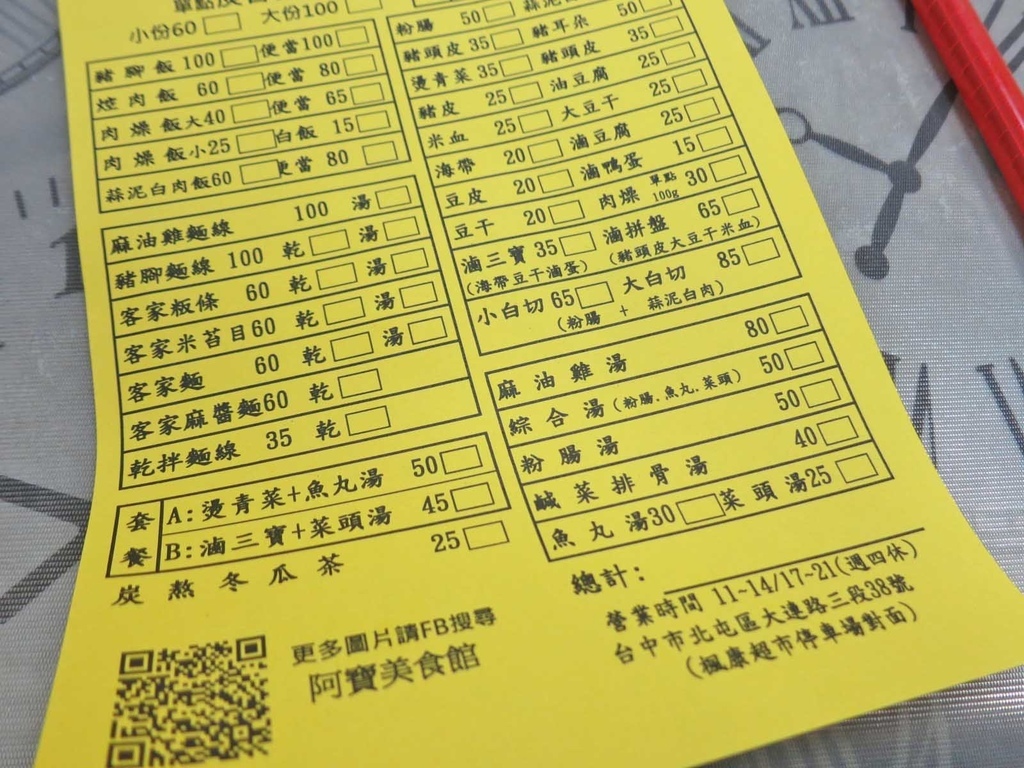 小份60 大份100
豬腳飯100 便當100
焢肉飯 60 便當 80
肉燥飯大40 便當 65
肉燥飯小25 白飯 15
蒜泥白肉飯60 便當 80
麻油雞麵線 100 湯
豬腳麵線 100 乾 湯
客家粄條 60 乾 湯
客家米苔目60 乾 湯
客家麵 60 乾 湯
客家麻醬麵60 乾
乾拌麵線 35 乾
套餐
A:燙青菜+魚丸湯 50
B:滷三寶+菜頭湯 45
炭熬冬瓜茶 25
更多圖片請FB搜尋
阿寶美食館
粉腸 50
豬頭皮 35 豬耳朵 50
燙青菜 35 豬頭皮 35
豬皮 25 油豆腐 25
米血 25 大豆干 25
海帶 20 滷豆腐 25
豆皮 20 滷鴨蛋 15
豆干 20 肉燥 單點100g 30
滷三寶 35 滷拼盤 65
(海帶豆干滷蛋) (豬頭皮大豆干米血)
小白切 65 大白切 85
(粉腸 + 蒜泥白肉)
麻油雞湯 80
綜合湯(粉腸.魚丸.菜頭) 50
粉腸湯 50
鹹菜排骨湯 40
魚丸湯30 菜頭湯25
總計:
營業時間 11~14/17~21(週四休)
台中市北屯區大連路三段38號
(楓康超市停車場對面)